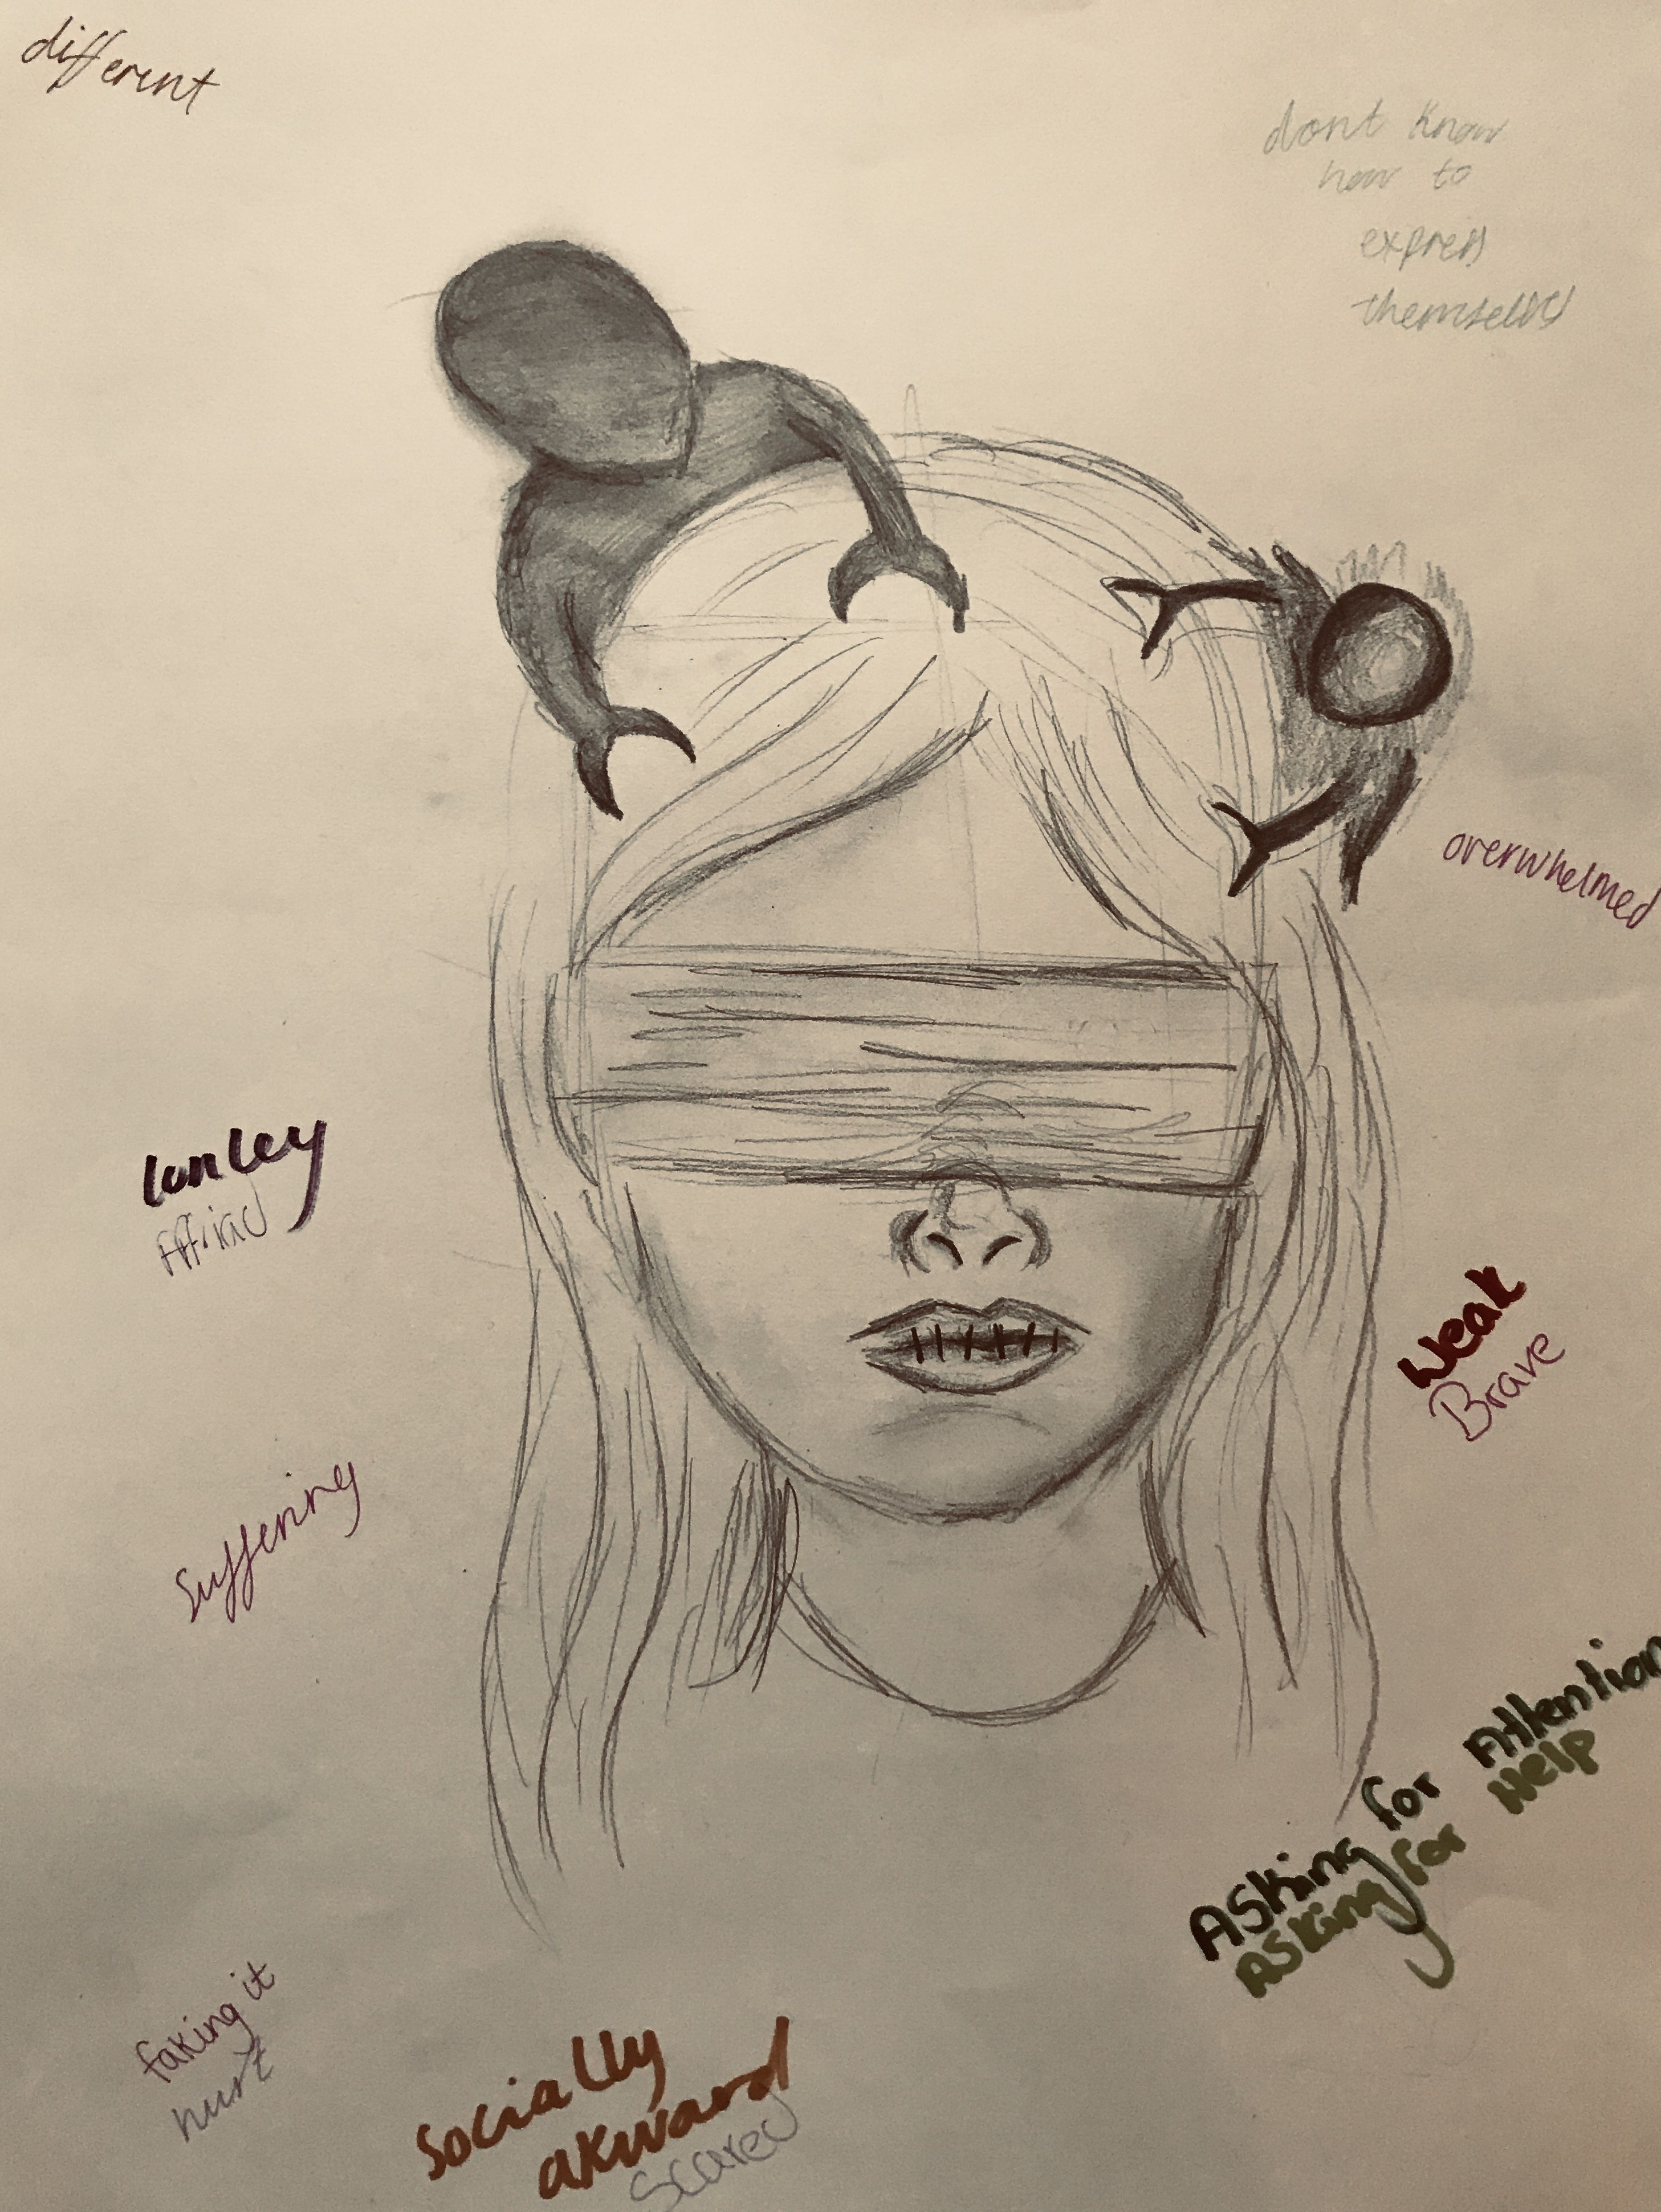 different
dont know
how to
express
themselves
overwhelmed
lonley
weak
Brave
suffering
Asking for Attention
Asking for Help
faking it
hurt
socially
akward
scared